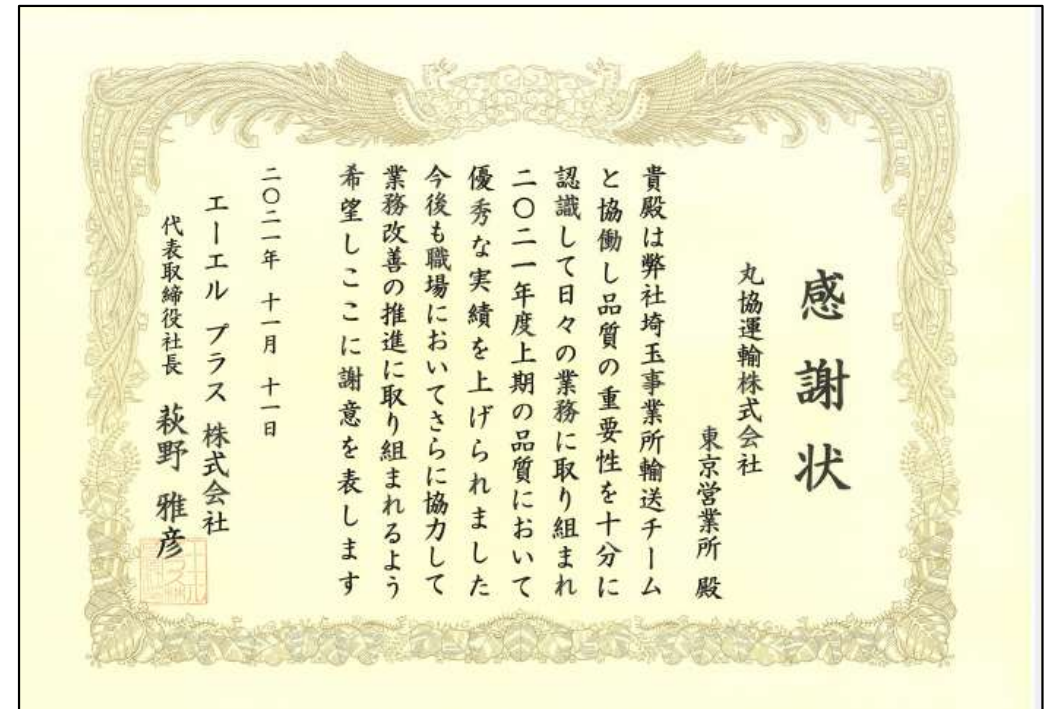 感謝状
丸協運輸株式会社
東京営業所 殿
貴殿は弊社埼玉事業所輸送チーム
と協働し品質の重要性を十分に
認識して日々の業務に取り組まれ
二〇二一年度上期の品質において
優秀な実績を上げられました
今後も職場においてさらに協力して
業務改善の推進に取り組まれるよう
希望しここに謝意を表します
二〇二一年 十一月 十一日
エーエル プラス 株式会社
代表取締役社長 萩野 雅彦